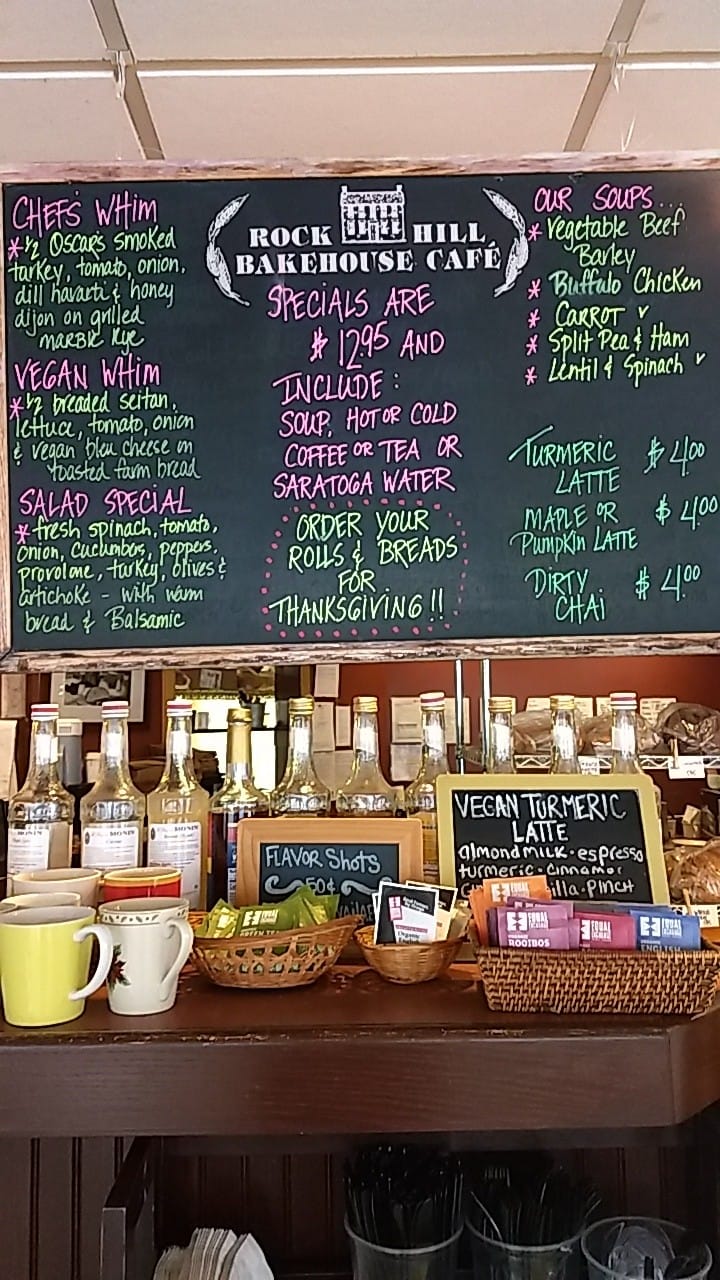 CHEFS WHIM
* 1/2 Oscars Smoked
turkey, tomato, onion,
dill havarti & honey
dijon on grilled
marble Rye
VEGAN WHIM
* 1/2 breaded seitan,
lettuce, tomato, onion
& vegan bleu cheese on
toasted farm bread
SALAD SPECIAL
* fresh spinach, tomato,
onion, cucumbers, peppers,
provolone, turkey, olives &
artichoke - with warm
bread & Balsamic
ROCK HILL
BAKEHOUSE CAFÉ
SPECIALS ARE
$12.95 AND
INCLUDE:
SOUP, HOT OR COLD
COFFEE OR TEA OR
SARATOGA WATER
ORDER YOUR
ROLLS & BREADS
FOR
THANKSGIVING!!
OUR SOUPS...
* Vegetable Beef
Barley
* Buffalo Chicken
* CARROT V
* Split Pea & Ham
* Lentil & Spinach V
TURMERIC $4.00
LATTE
MAPLE OR $4.00
PUMPKIN LATTE
DIRTY $4.00
CHAI
MONIN
MONIN
MONIN
FLAVOR SHOTS
50¢
VEGAN TURMERIC
LATTE
almond milk · espresso
turmeric · cinnamon
PINCH
EQUAL
ROOIBOS
EQUAL
ENGLISH
GREEN TEA
Organic